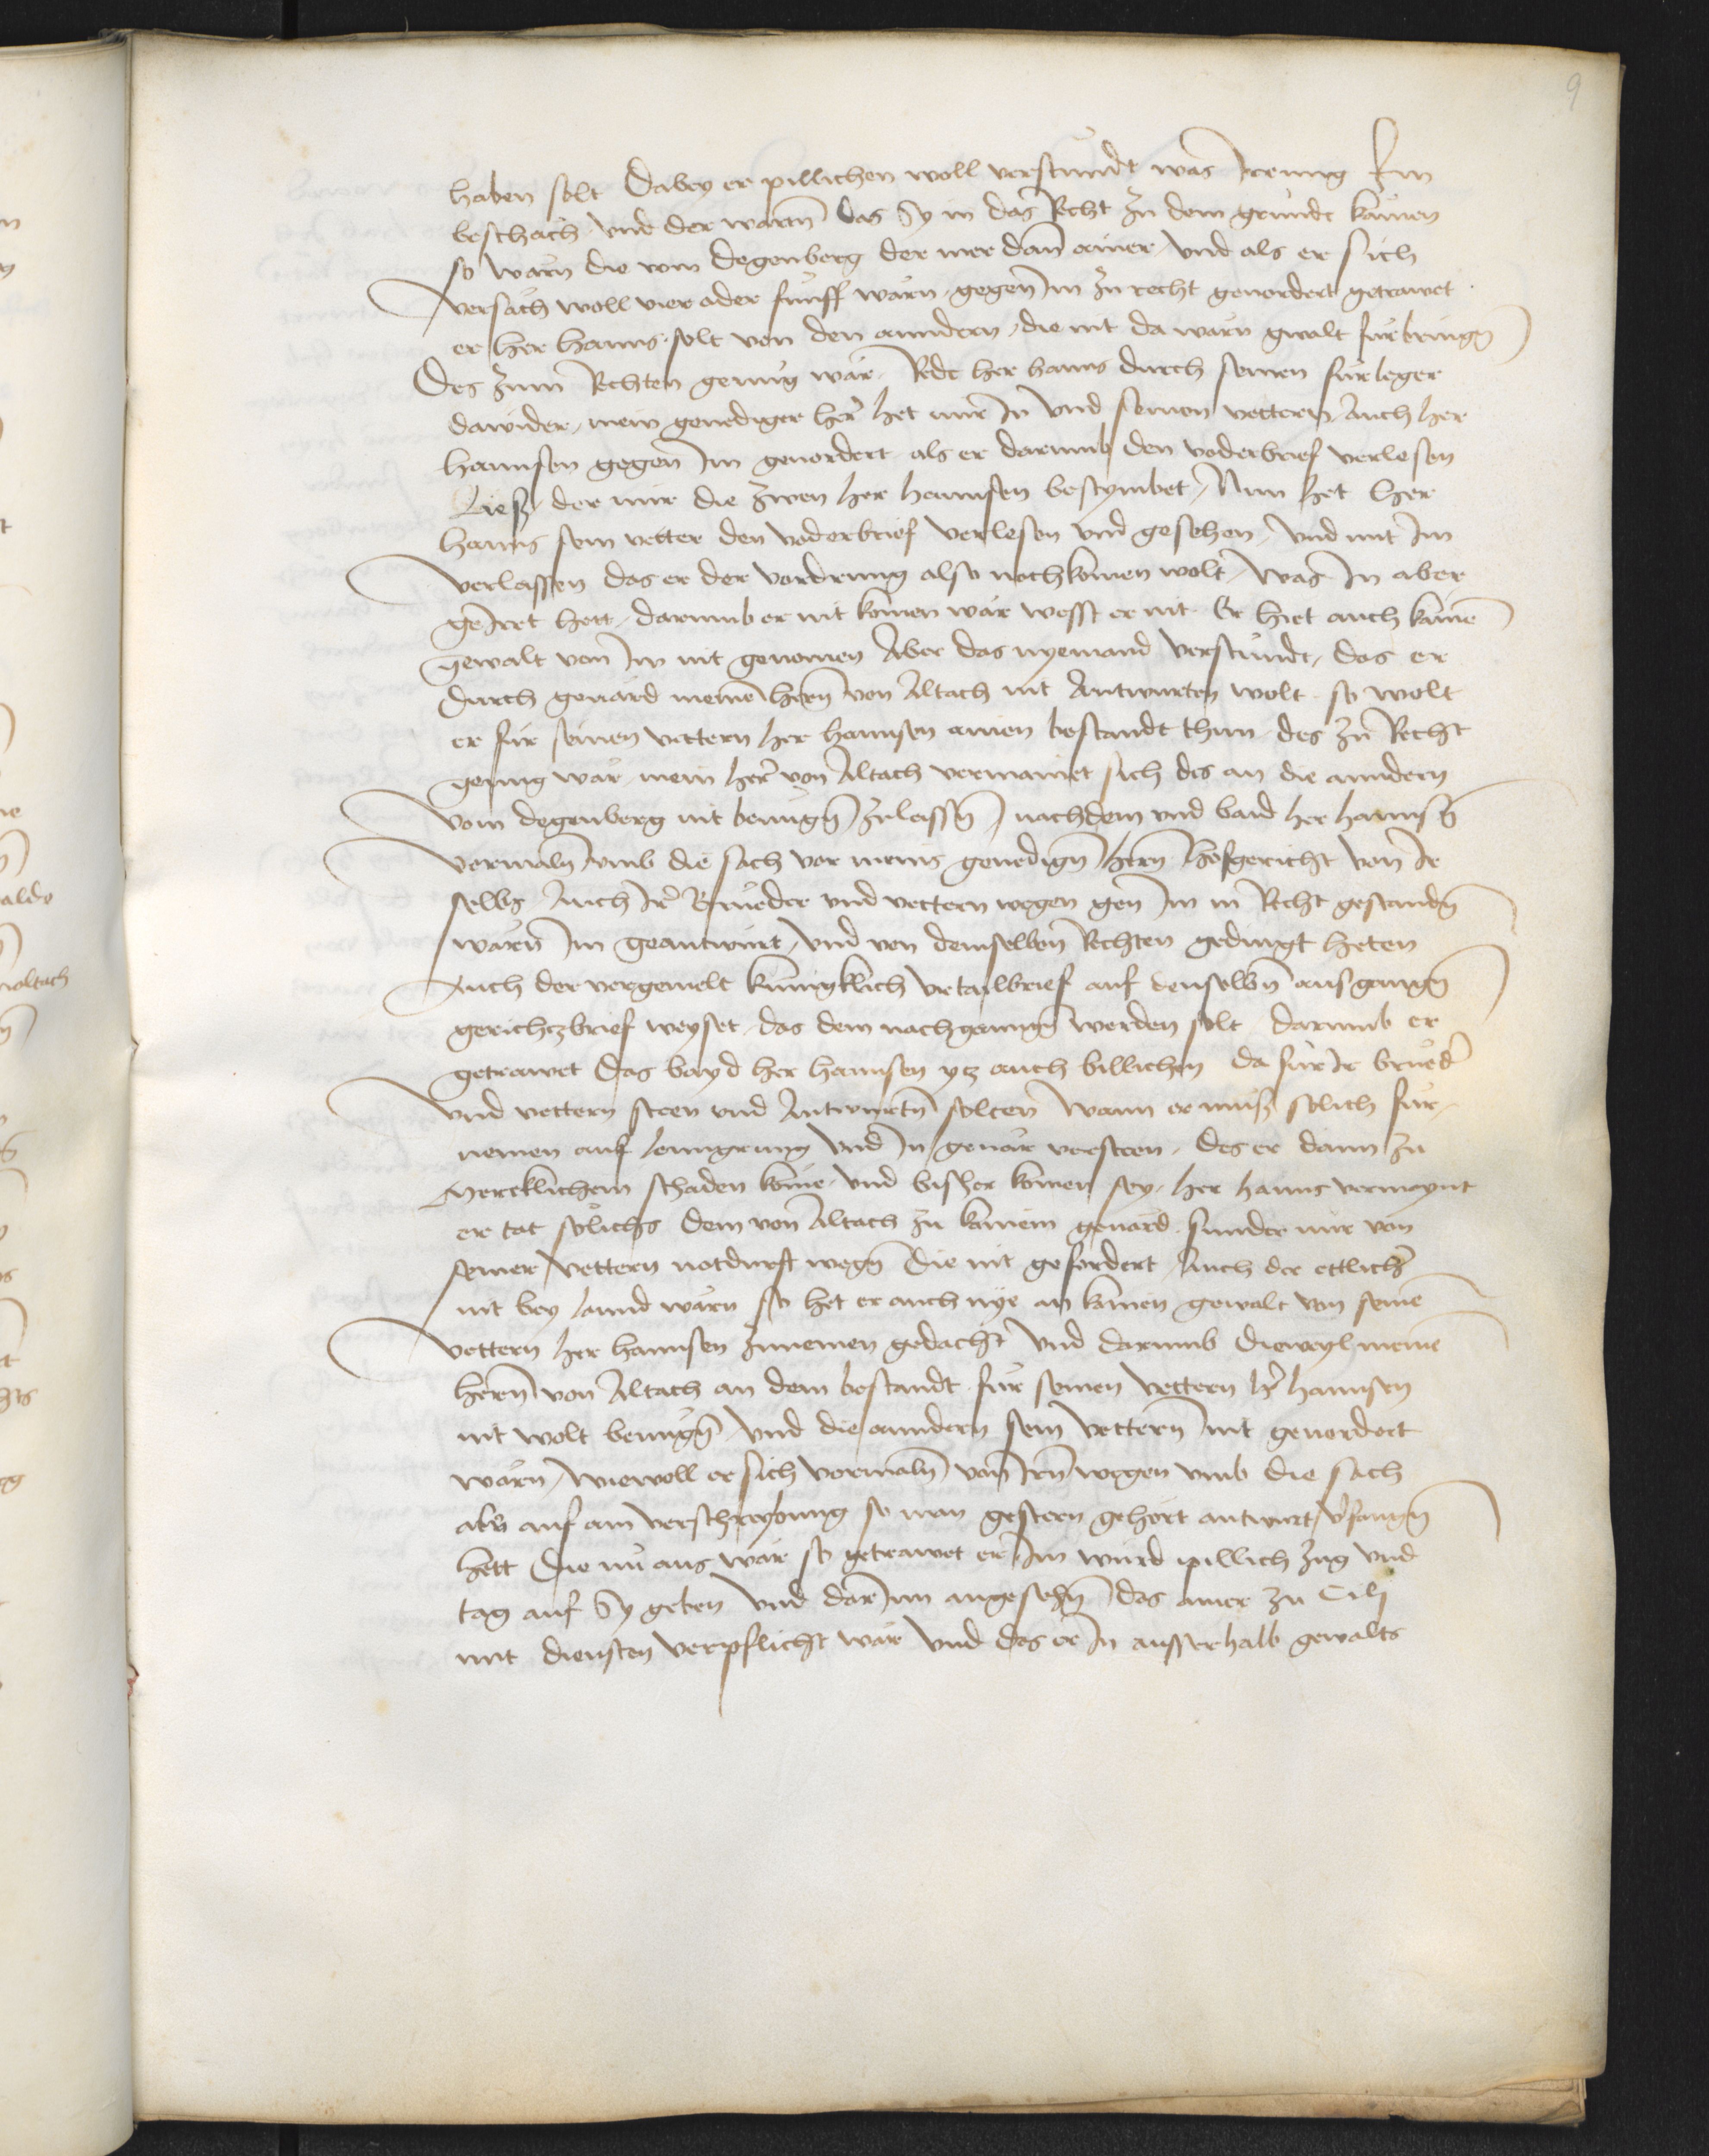 9
haben solt Dabey er pillichen woll verstundt was Irrung Im
beschach vnd der wartn̄ das Sy in das Recht zu dem grundt kämen
so warn die vom Degenberg der mer dan̄ ainer vnd als er sich
versäch woll vier oder fünff wärn gegen Im zu recht geuordert getrawet
er her Hanns solt von den anndern die nit da wärn gwalt fürbringn̄
Des zum Rechten genug wär Redt her hanns durch seinen fürleger
dawider mein genediger her̄ het nür In vnd seinen vettern Auch her
Hannsen gegen Im geuordert als er darumb den voderbrief verlesen
Ließ der nür die zwen her Hannsen bestymbet Nun het her
Hanns sein vetter den voderbrief verlesen vnd gesehen vnd mit Im
verlassen das er der vordrung also nochkomen wolt was In aber
geirret hett darumb er nit komen wär wesst er nit Er hiet auch kainē
gewalt von Im nit genomen Aber das nyemand verstundt das er
durch geuärd meinē hern̄ von Altach nit Antwurten wolt so wolt
er für seinen vettern her Hannsen ainen bestandt thun des zu Recht
genug wär mein her̄ von Altach vermainet sich des an die anndern
vom degenberg nit benügn̄ zulassn̄ nachdem vnd baid her Hannsn̄
vormaln̄ vmb die sach vor meins genedign̄ hern̄ Hofgericht von Ir
selbs Auch Ir̄ Brueder vnd vettern wegen gen̄ Im in Recht gestandn̄
wärn̄ Im geantwurt vnd von demselben̄ Rechten gedingt heten
Auch der vorgemelt kuniglich vrtailbrief auf denselbn̄ ausganngn̄
gerichtzbrief weyset das dem nachganngn̄ werden solt darumb er
getrawet das bayd her Hannsen ytz auch billichen da für Ir brued̄
vnd vettern steen vnd Antwurtn̄ solten Wann er müß solich für
nemen auf lenngrung vnd In geuär versteen des er dann zu
Mercklichem schaden käme vnd bisher komen sey her Hanns vermeynt
er tät solichs dem von Altach zu kainem geuärd sunder nür von
seiner vettern notdurft wegn̄ Die nit gefordert Auch der ettlich̄
nit bey lannd wärn so het er auch nye an kainen gewalt von seinē
vettern her Hannsen zunemen gedacht vnd darumb dieweyl meinē
hern̄ von Altach an dem bestandt für seinen vettern h̄r Hannsen
nit wolt benügn̄ vnd die anndern sein vettern nit geuordert
wärn wiewoll er sich vormaln̄ von Irn̄ wegen vmb die sach
abn̄ auf ain verschreybung so man gestern gehört antwurt v̄fangn̄
hett Die nu aus wär so getrawet er Im wurd pillich zug vnd
tag auf Sy geben vnd dar Inn angesehn̄ das ainer zu Cili
mit diensten verpflicht wär vnd das er In ausserhalb gewalts